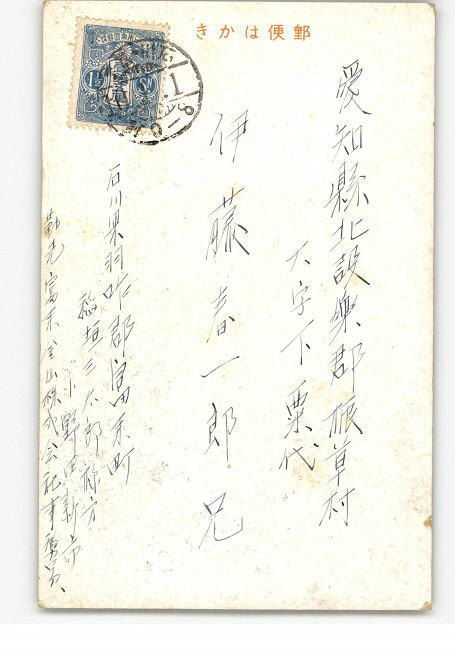 きかは便郵
1½ Sn
愛知縣北設樂郡振草村
大字下粟代
伊藤春一郎兄
石川県羽咋郡富来町
稲垣三太郎様方
小野田新一
勤先富来金山株式会社事務員